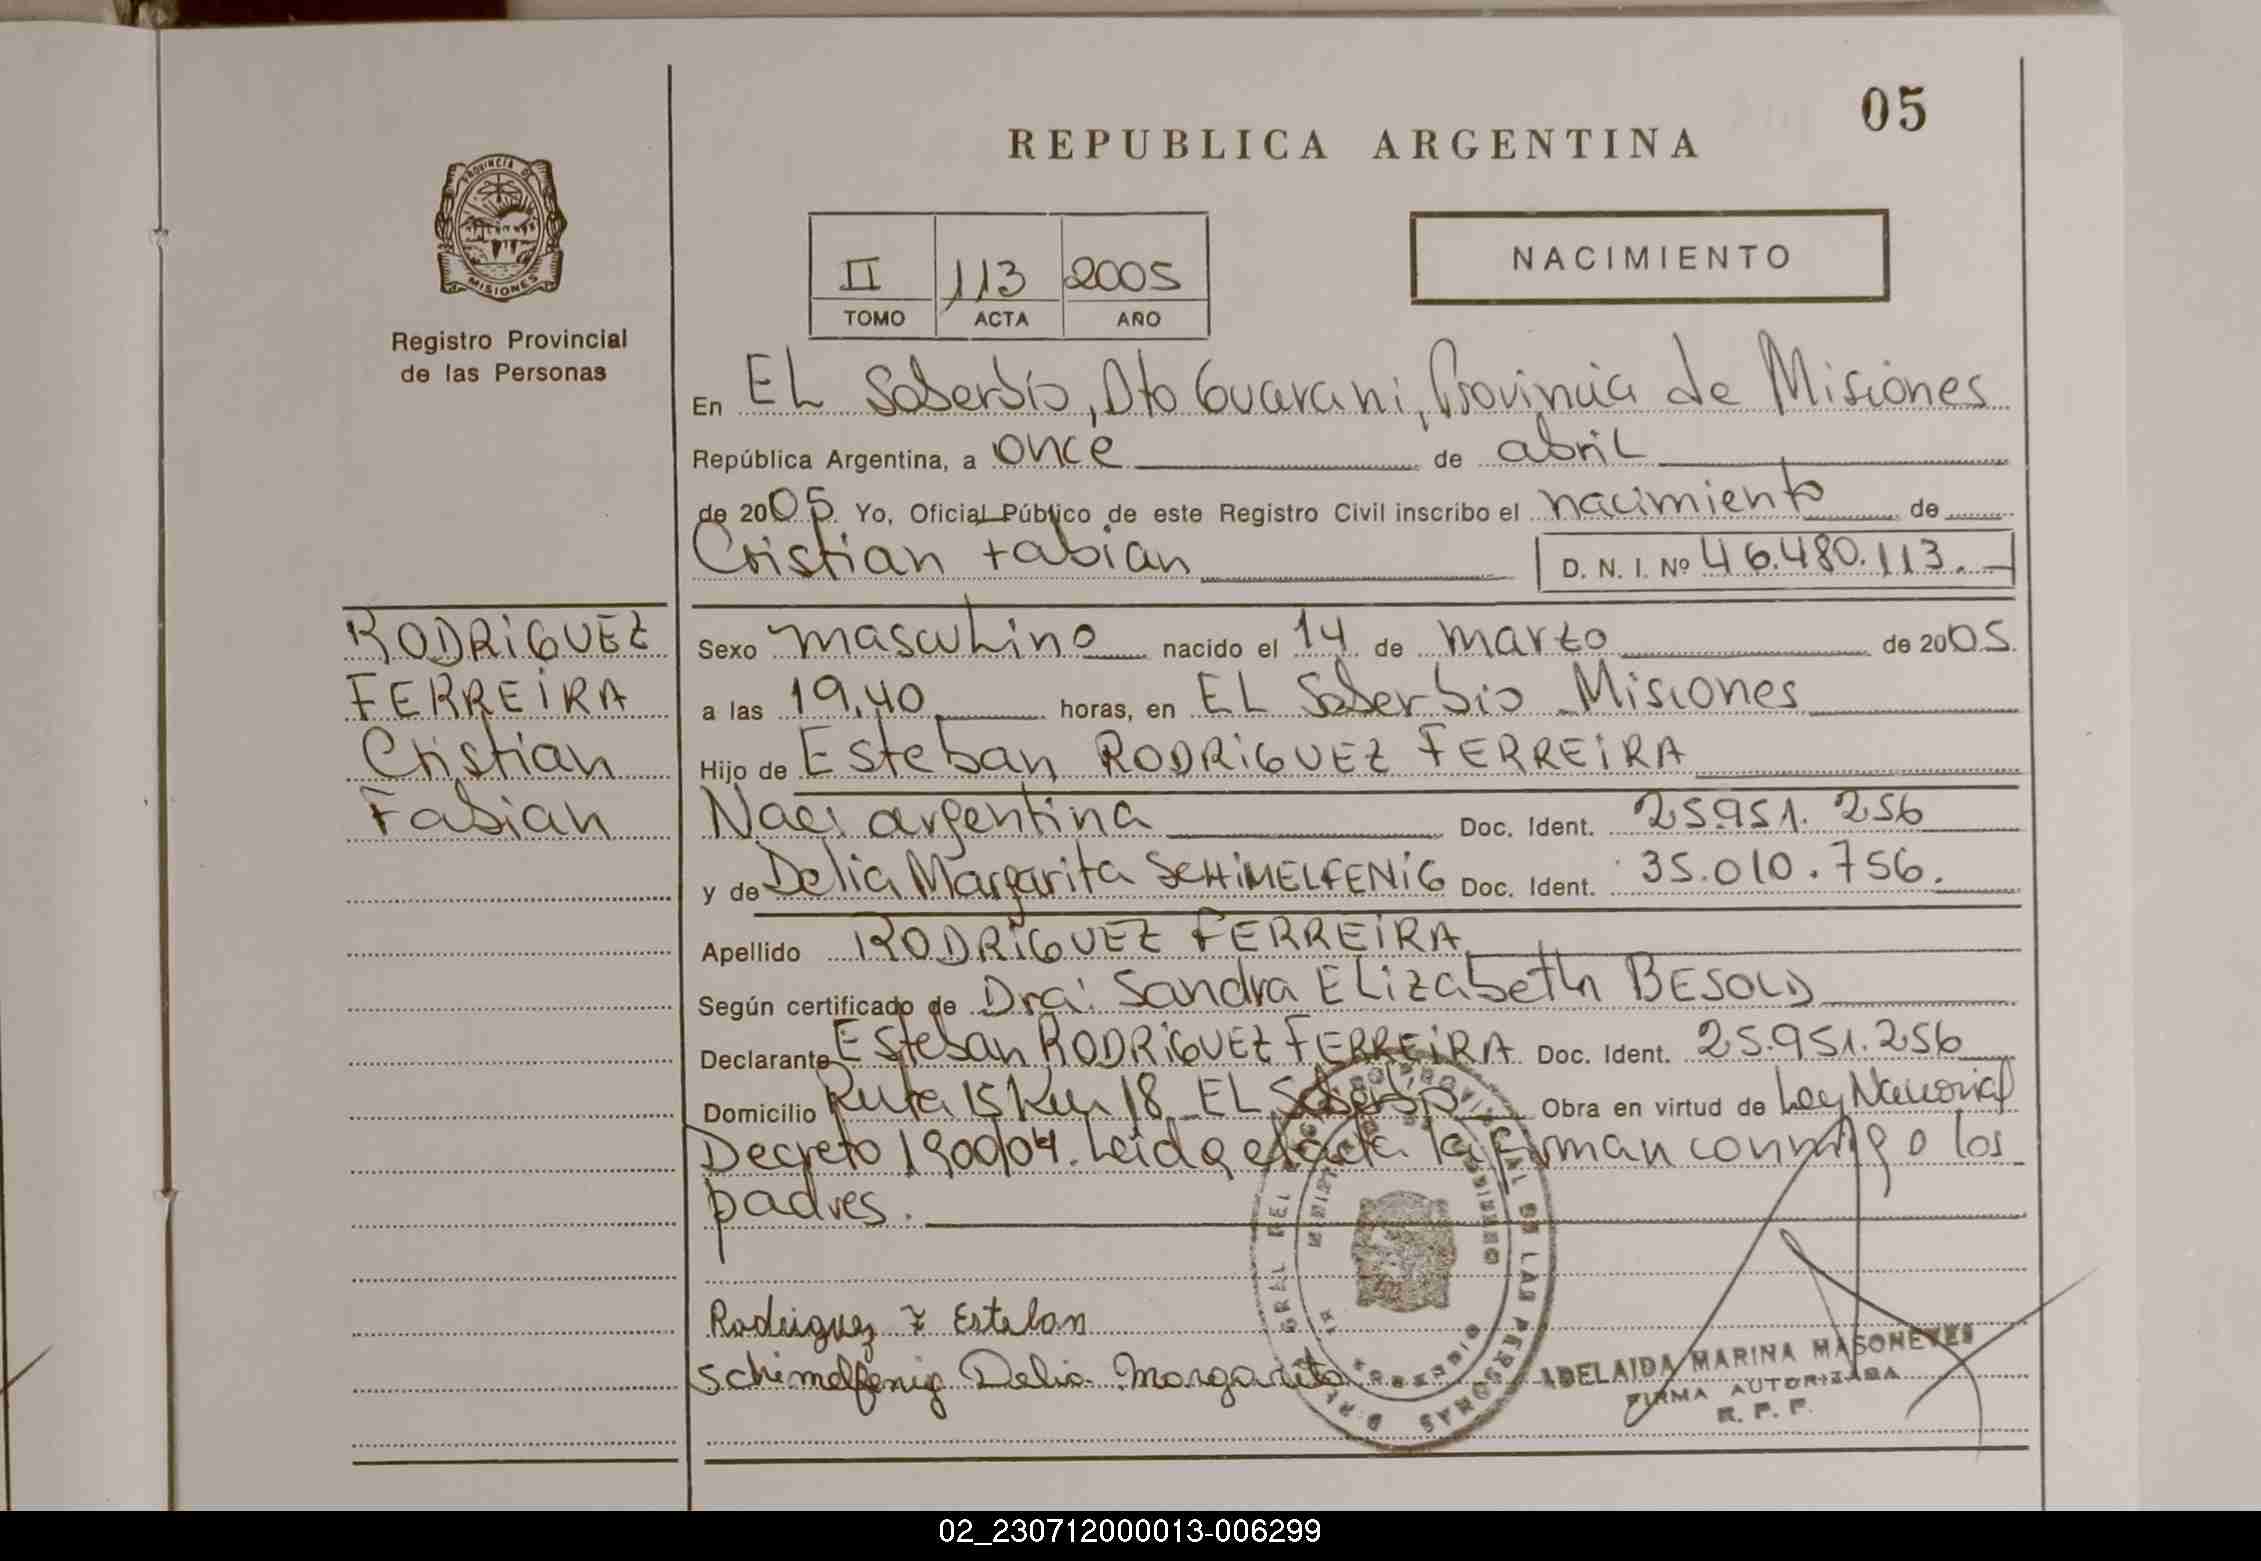 05
REPUBLICA ARGENTINA
PROVINCIA DE
MISIONES
Registro Provincial
de las Personas
II 113 2005
TOMO ACTA AÑO
NACIMIENTO
En EL Soberbio, Dto Guarani, Provincia de Misiones
República Argentina, a once de abril
de 2005. Yo, Oficial Público de este Registro Civil inscribo el nacimiento de
Cristian Fabian D. N. I. Nº 46.480.113.
RODRIGUEZ
FERREIRA
Cristian
Fabian
Sexo masculino nacido el 14 de marzo de 2005.
a las 19,40 horas, en EL Soberbio Misiones
Hijo de Esteban RODRIGUEZ FERREIRA
Nac. argentina Doc. Ident. 25951.256
y de Delia Margarita SCHIMELFENIG Doc. Ident. 35.010.756.
Apellido RODRIGUEZ FERREIRA
Según certificado de Dra. Sandra Elizabeth BESOLD
Declarante Esteban RODRIGUEZ FERREIRA Doc. Ident. 25.951.256
Domicilio Ruta 15 Km 18 EL Soberbio Obra en virtud de Ley Nacional
Decreto 1900/04. Leida el acta la firman conmigo los
padres.
Rodriguez F Esteban
Schimelfenig Delia Margarita
ADELAIDA MARINA MASONEVES
FIRMA AUTORIZADA
R. P. P.
02_230712000013-006299